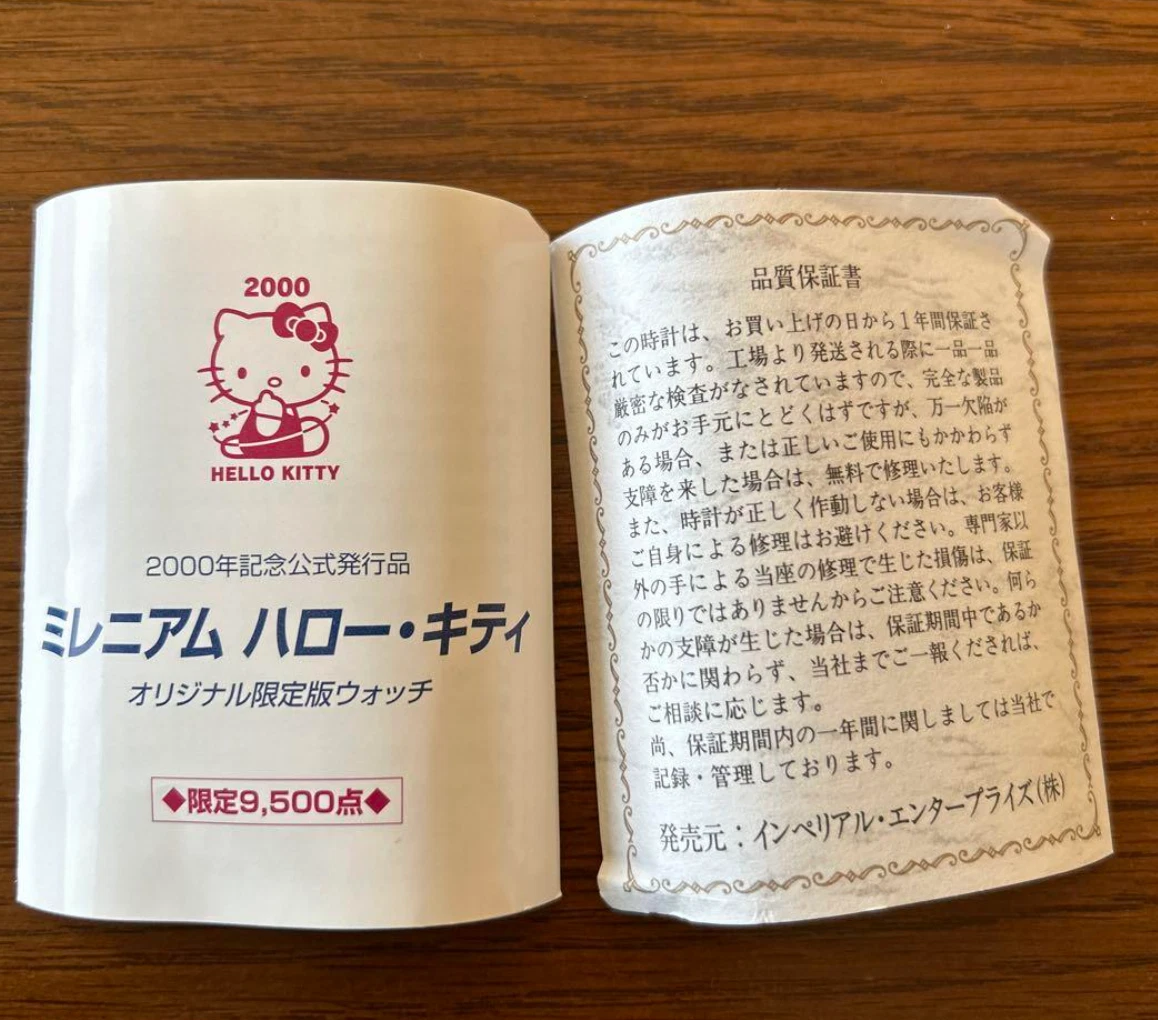 2000
HELLO KITTY
2000年記念公式発行品
ミレニアム ハロー・キティ
オリジナル限定版ウォッチ
◆限定9,500点◆
品質保証書
この時計は、お買い上げの日から1年間保証さ
れています。工場より発送される際に一品一品
厳密な検査がなされていますので、完全な製品
のみがお手元にとどくはずですが、万一欠陥が
ある場合、または正しいご使用にもかかわらず
支障を来した場合は、無料で修理いたします。
また、時計が正しく作動しない場合は、お客様
ご自身による修理はお避けください。専門家以
外の手による当座の修理で生じた損傷は、保証
の限りではありませんからご注意ください。何ら
かの支障が生じた場合は、保証期間中であるか
否かに関わらず、当社までご一報くだされば、
ご相談に応じます。
尚、保証期間内の一年間に関しましては当社で
記録・管理しております。
発売元：インペリアル・エンタープライズ(株)